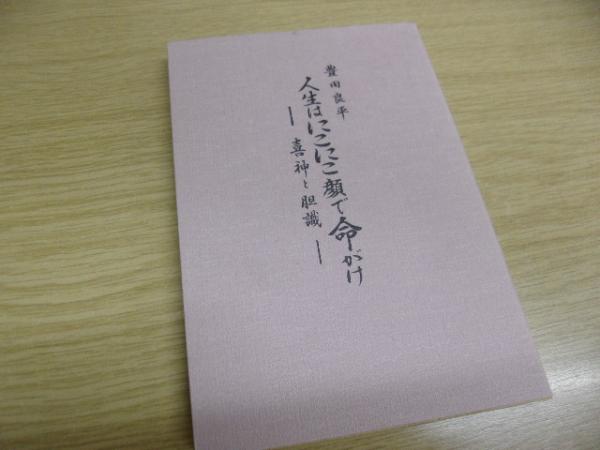 豊田良平
人生はにこにこ顔で命がけ
― 喜神と胆識 ―